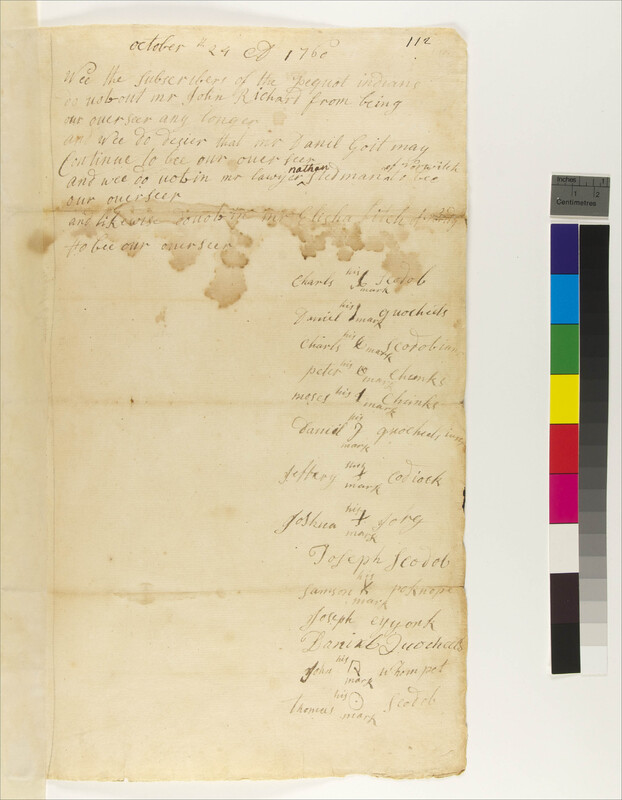 112
october th 24 AD 1760
Wee the subscribers of the pequot indians
do vobout mr John Richard from being
our overseer any longer
and wee do desier that mr Danil Goit may
Continue to bee our overseer
and wee do vobin mr lawyer nathan Stedman of Norwitch to bee
our overseer
and likewise do vobin mr Elisha fitch
to bee our overseer
Charls his mark Scodob
Daniel his mark quocheets
Charls his mark Scodobian
peter his mark Chunks
moses his mark Chunks
Daniel his mark quocheets
Jeffrey his mark Codiock
Joshua his mark Jorg
Joseph Scodob
Samson his mark poknope
Joseph wyyonk
Daniel Quocheets
John his mark whompet
thomas his mark Scodob
inches
1
2
Centimetres